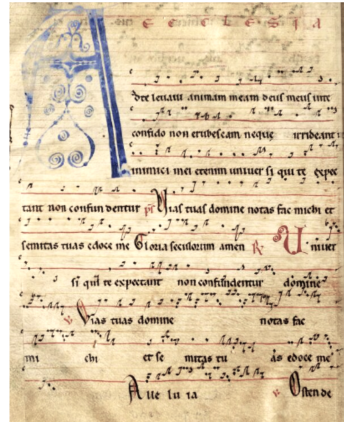 ECCLESIA
A
dte leuaui animam meam deus meus in te
confido non erubescam neque irrideant
inimici mei etenim uniuer si qui te expec
tant non confun dentur ps Uias tuas domine notas fac michi et
semitas tuas edoce me Gloria seculorum amen R. Uniuer
si qui te expectant non confundentur domine
v Uias tuas domine notas fac
mi chi et se mitas tu as edoce me
Alle lu ia v Osten de